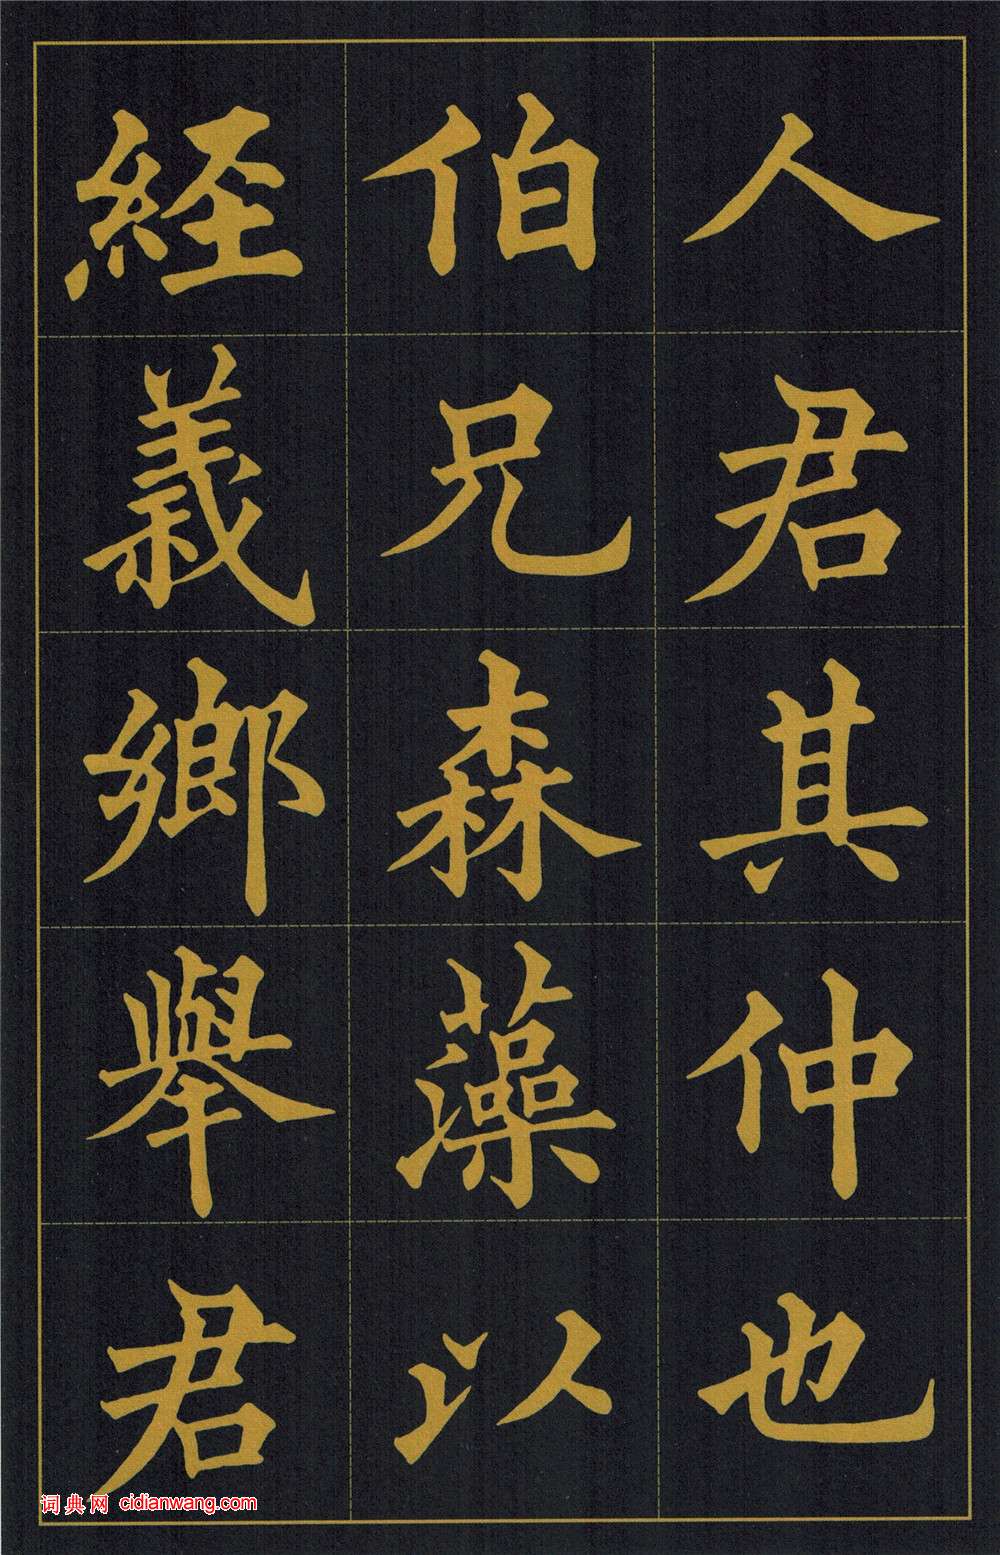 人君其仲也
伯兄森藻以
經義鄉舉君
词典网 cidianwang.com